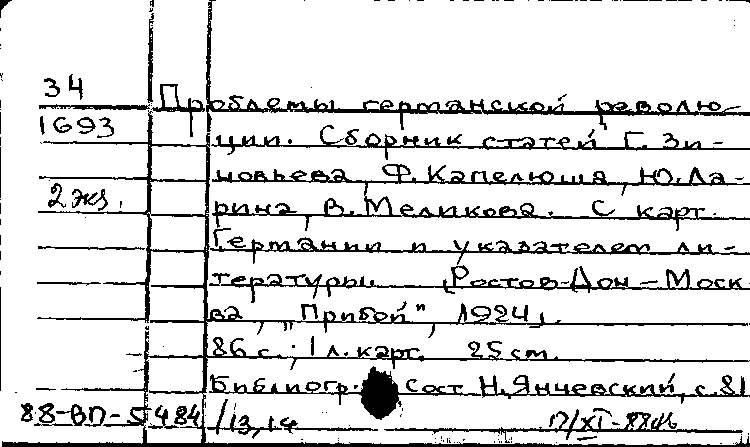 34
Проблемы германской револю-
1693
ции. Сборник статей Г. Зи-
новьева, Ф. Капелюша, Ю. Ла-
2 экз.
рина, В. Меликова. С карт.
Германии и указателем ли-
тературы. [Ростов-Дон – Моск
ва, „Прибой", 1924].
86 с.; 1 л. карт. 25 cm.
Библиогр.: Сост. Н. Янчевский, с. 81
88-ВП-5484/13,14